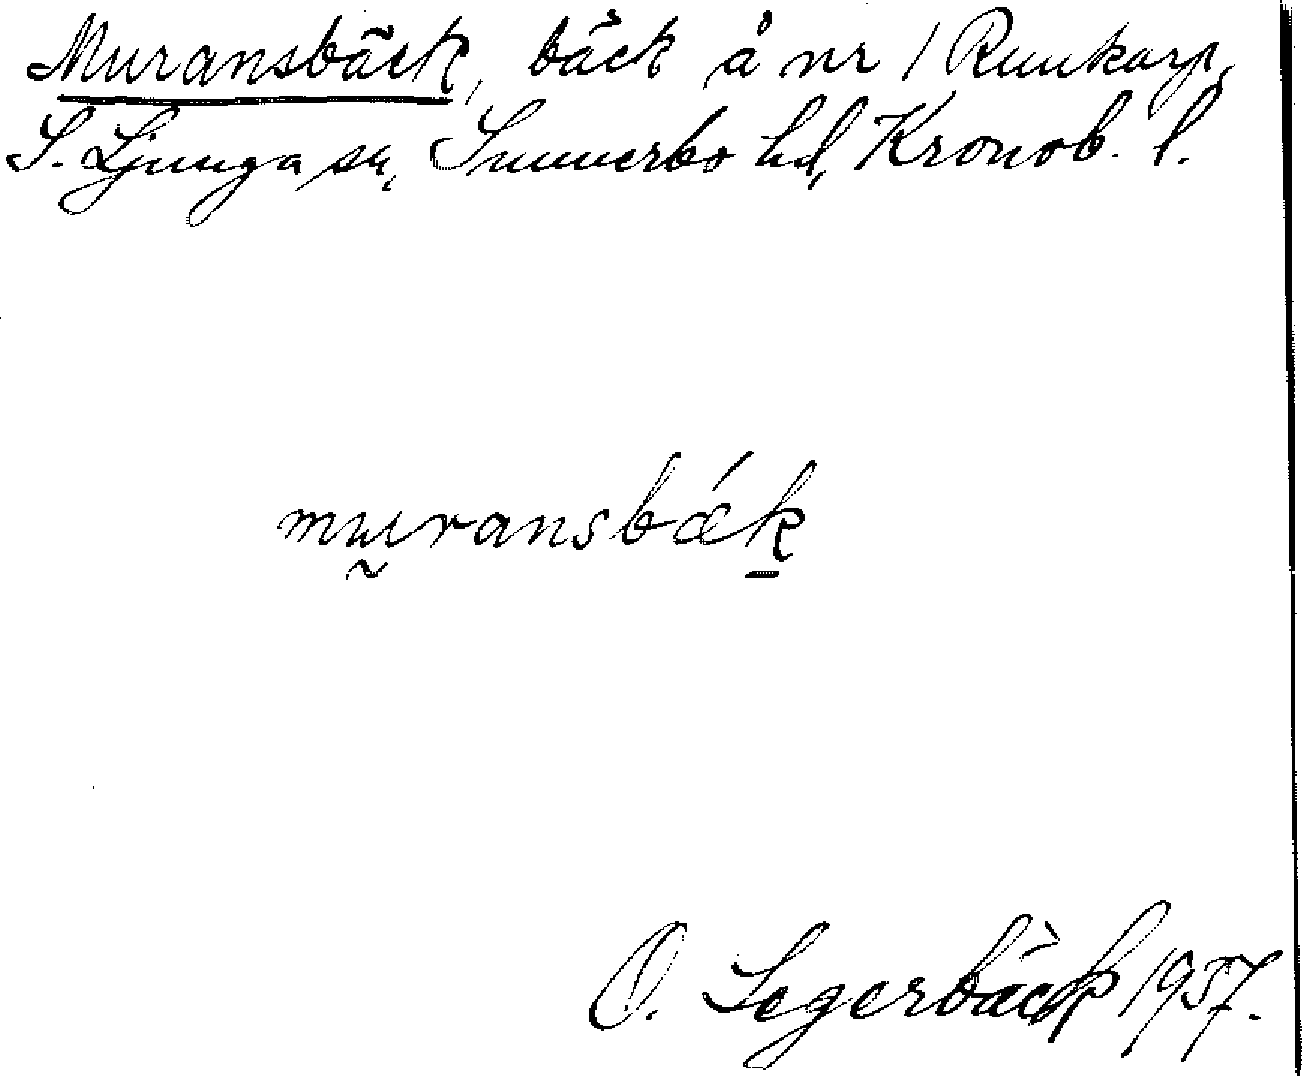 Muransbäck, bäck å nr 1 Runkarp,
S. Ljunga sn, Sunnerbo hd, Kronob. l.
muransbǽk
O. Segerbäck 1957.